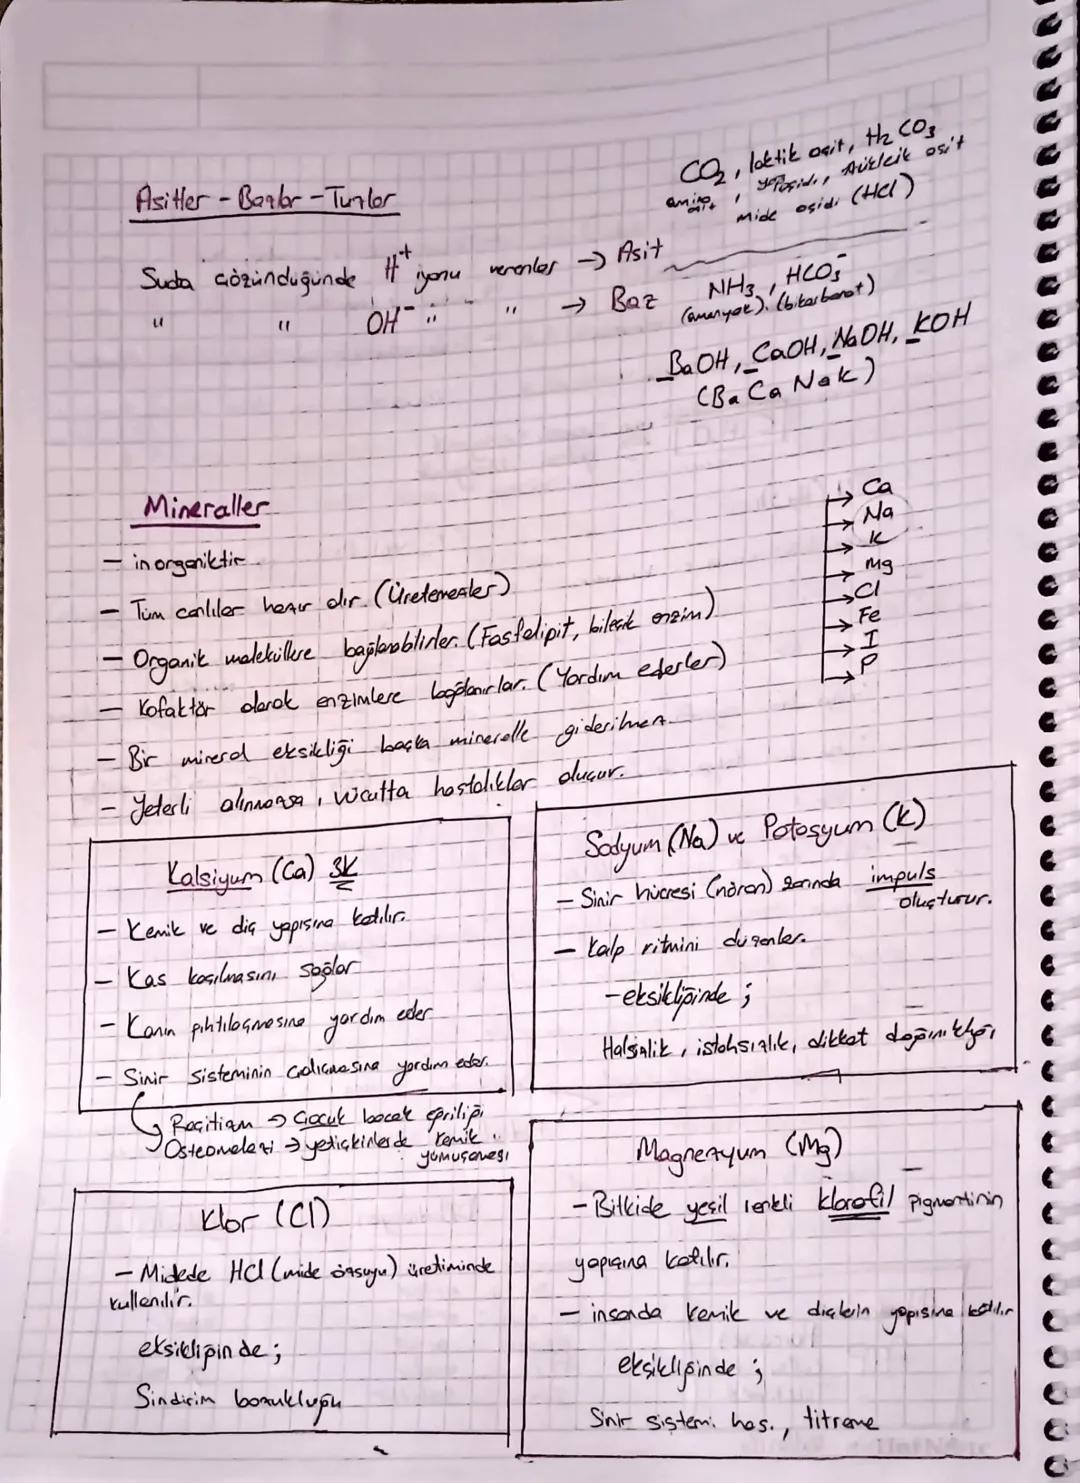 Asitler - Bazlar - Tuzlar
CO2, laktik asit, H2CO3
amino asit, yağ asidi, nükleik asit
mide asidi (HCl)
Suda çözündüğünde H+ iyonu verenler → Asit
" " OH- " " → Baz
NH3, HCO3-
(amonyak), (bikarbonat)
BaOH, CaOH, NaOH, KOH
(Ba Ca NaK)
Mineraller
- inorganiktir.
- Tüm canlılar hazır alır. (Üretemezler)
- Organik moleküllere bağlanabilirler. (Fosfolipit, bileşik enzim)
- Kofaktör olarak enzimlere bağlanırlar. (Yardım ederler)
- Bir mineral eksikliği başka mineralle giderilmez.
- Yeterli alınmazsa, vücutta hastalıklar oluşur.
→ Ca
→ Na
→ K
→ Mg
→ Cl
→ Fe
→ I
→ P
Kalsiyum (Ca) 3K
- Kemik ve diş yapısına katılır.
- Kas kasılmasını sağlar
- Kanın pıhtılaşmasına yardım eder
- Sinir sisteminin çalışmasına yardım eder.
Raşitizm → Çocuk bacak eğriliği
Osteomalazi → yetişkinlerde kemik
yumuşaması
Sodyum (Na) ve Potasyum (K)
- Sinir hücresi (nöron) zarında impuls
oluşturur.
- Kalp ritmini düzenler.
- eksikliğinde ;
Halsizlik, iştahsızlık, dikkat dağınıklığı
Klor (Cl)
- Midede HCl (mide özsuyu) üretiminde
kullanılır.
eksikliğinde ;
Sindirim bozukluğu
Magnezyum (Mg)
- Bitkide yeşil renkli klorofil pigmentinin
yapısına katılır.
- insanda kemik ve dişlerin yapısına katılır
eksikliğinde ;
Sinir sistemi has., titreme